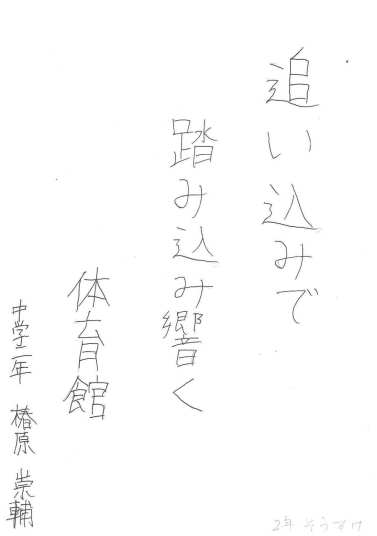 追い込みで
踏み込み響く
体育館
中学二年 椿原 崇輔
2年 そうすけ